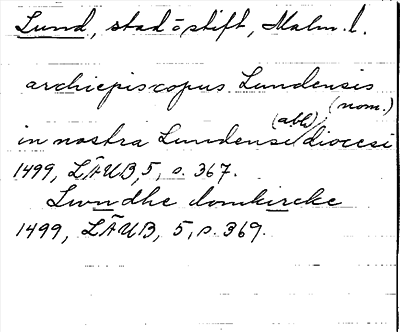 Lund, stad o stift, Malm. l.
archiepiscopus Lundensis
(nom.)
(abl)
in nostra Lundensi diocesi
1499, LÄUB, 5, s. 367.
Lwndhe domkircke
1499, LÄUB, 5, s. 369.